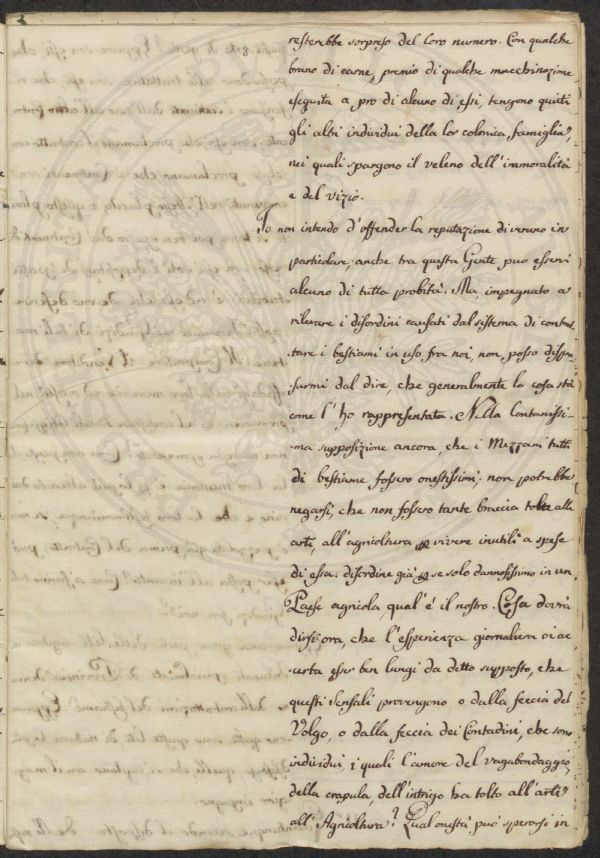 resterebbe sorpreso del loro numero. Con qualche
brano di carne, premio di qualche macchinazione
eseguita a pro di alcuno di essi, tengono quieti
gli altri individui della lor colonica famiglia,
nei quali spargono il veleno dell'immoralità
e del vizio.
Io non intendo d'offender la reputazione di veruno in
particolare; anche tra questa Gente puo esservi
alcuno di tutta probità. Ma, impegnato a
rilevare i disordini causati dal sistema di contrat-
-tare i bestiami in uso fra noi, non posso dispen-
-sarmi dal dire, che generalmente la cosa stà
come l'ho rappresentata. Nella lontanissi-
-ma supposizione ancora, che i Mezzani tutti
di bestiame fossero onestissimi; non potrebbe
negarsi, che non fossero tante braccia tolte alle
arti, all'agricoltura p vivere inutili a spese
di essa: disordine già p se solo dannosissimo in un
Paese agricola, qual'è il nostro. Cosa dovrà
dirsi ora, che l'esperienza giornaliera ci ac-
-certa esser ben lungi da detto supposto, che
questi Sensali provengono o dalla feccia del
Volgo, o dalla feccia dei Contadini, che sono
individui, i quali l'amore del vagabondaggio,
della crapula, dell'intrigo ha tolto all'arti
all'Agricoltura? Qual onestà può sperarsi in